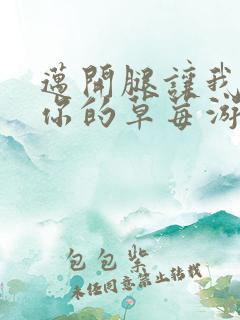 邁開腿讓我
你的草莓游
包包紫
未经同意禁止转载